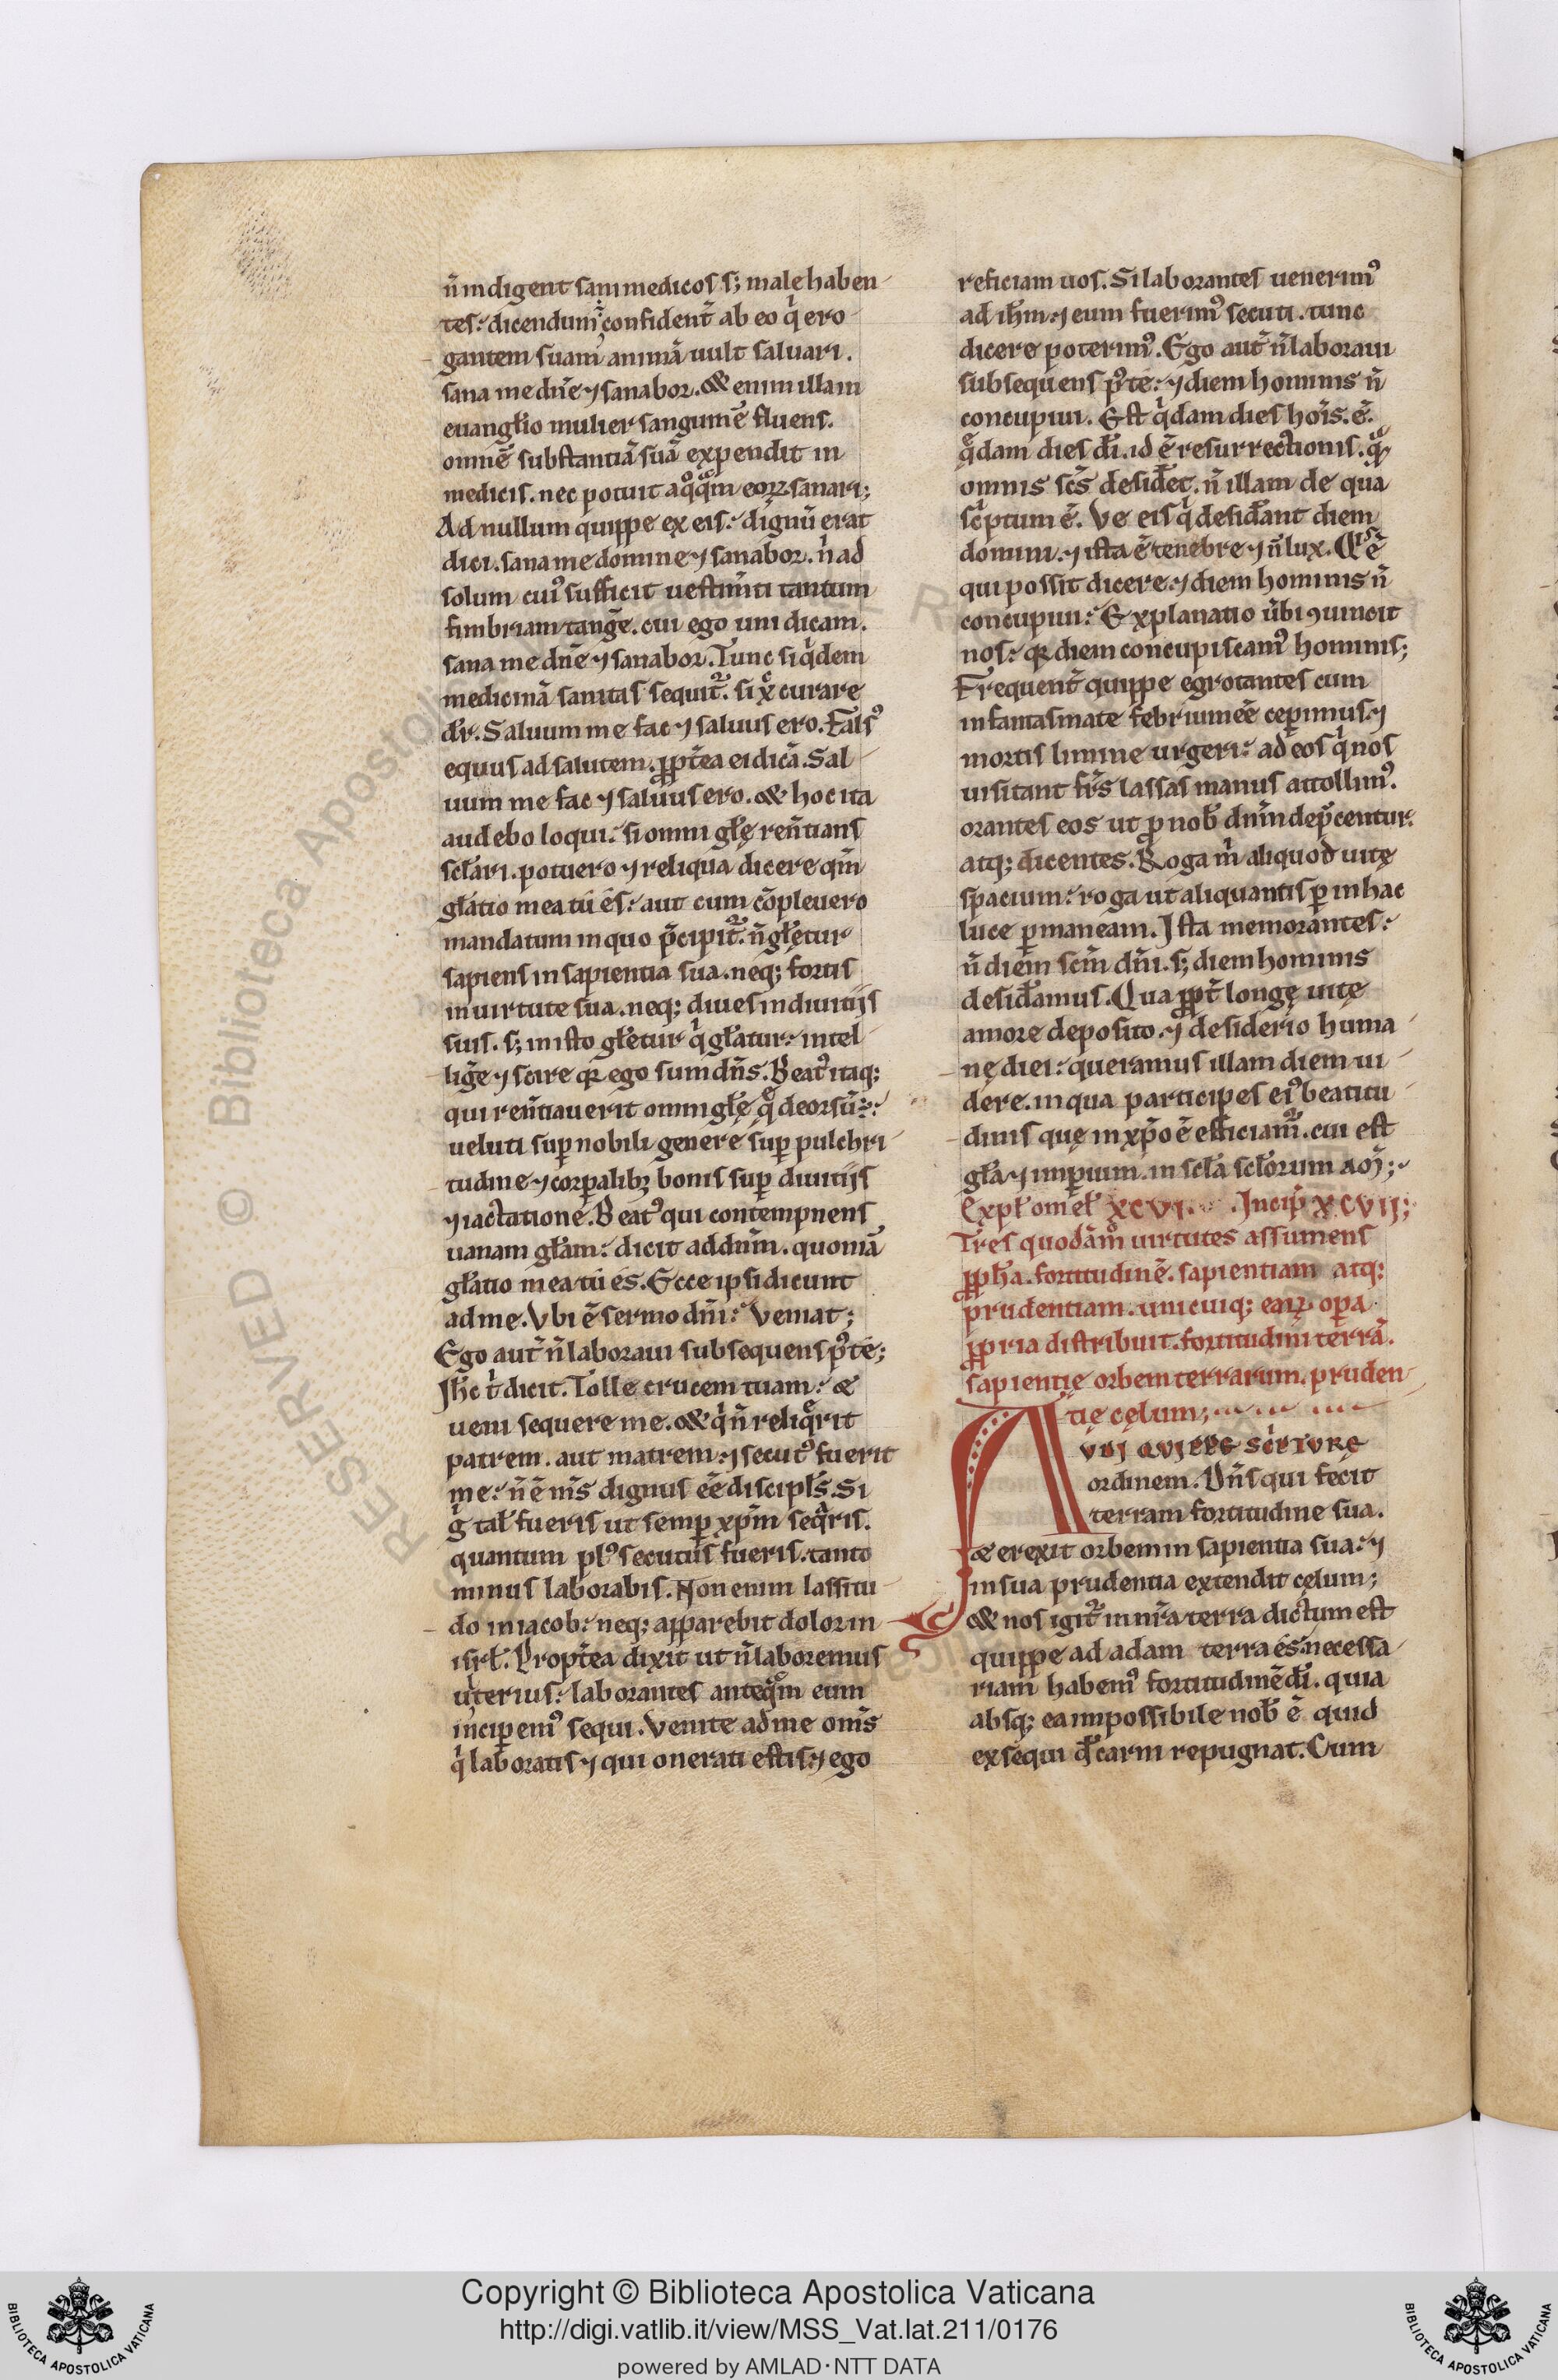 n̄ indigent sani medicos s; male haben
tes. dicendum ÷ confident̄ ab eo qͥ ero
gantem suam animā uult saluari.
sana me dn̄e ⁊ sanabor. & enim illam
euangl̄io mulier sanguinē fluens.
omnē substantiā suā expendit in
medicis. nec potuit a qͦqͣm eoꝝ sanari;
Ad nullum quippe ex eis. dignū erat
dici. sana me domine ⁊ sanabor. nͥ ad
solum cuiꝰ sufficit uestim̄ti tantum
fimbriam tangē̄. cui ego uni dicam.
sana me dn̄e ⁊ sanabor. Tunc si qͥdem
medicinā sanitas sequit᷑. si xͨ curare
dr̄. Saluum me fac ⁊ saluus ero. Falsꝰ
equus ad salutem. ꝓpt̄ea ei dicā. Sal
uum me fac ⁊ saluus ero. & hoc ita
audebo loqui. si omni gl̄ę ren̄tians
scl̄ari. potuero ⁊ reliqua dicere qm̄
gl̄atio mea tū es. aut cum cōpleuero
mandatum in quo p̄cipit᷑. n̄ gl̄etur
sapiens in sapientia sua. neq; fortis
in uirtute sua. neq; diues in diuitijs
suis. s; in isto gl̄etur qͥ gl̄atur. intel
liḡe ⁊ scire qꝛ ego sum dn̄s. Beatꝰ itaq;
qui ren̄tiauerit omni gl̄ę qͣ deorsū ÷.
ueluti sup̱ nobili genere sup̱ pulchri
tudine ⁊ corp̱alibꝫ bonis sup̱ diuitijs
⁊ iactatione. Beatꝰ qui contempnens
uanam gl̄am. dicit ad dn̄m. quoniā
gl̄atio mea tū es. Ecce ipsi dicunt
ad me. Vbi ē sermo dn̄i. Veniat;
Ego aut̄ n̄ laboraui subsequens pꝰ te;
Jh̄c t̄ dicit. Tolle crucem tuam. &
ueni sequere me. & qͥ n̄ reliqͤrit
patrem. aut matrem. ⁊ secutꝰ fuerit
me. n̄ ē m̄s dignus eē discipl̄s. Si
gͥ tal̄ fueris ut semp̱ xp̄m seqͣris.
quantum pl̄ꝰ secutus fueris. tanto
minus laborabis. Non enim lassitu
do in iacob. neq; apparebit dolor in
isrl̄. Propt̄ea dixit ut n̄ laboremus
ult̄erius. laborantes anteqͣm eum
incip̱emꝰ sequi. Venite ad me om̄s
qͥ laboratis ⁊ qui onerati estis. ⁊ ego
reficiam uos. Si laborantes uenerimꝰ
ad ih̄m. ⁊ eum fuerimꝰ secuti. tunc
dicere poterimꝰ. Ego aut̄ n̄ laboraui
subsequens pꝰ te. ⁊ diem hominis n̄
concupiui. Est qͥdam dies hoīs. ē.
qͤdam dies dī. id ē resurrectionis. qͣꝫ
omnis sc̄s desid̄et. n̄ illam de qua
scͥptum ē. Ve eis qͥ desid̄ant diem
domini. ⁊ ista ē tenebre ⁊ n̄ lux. Qͥs ē
qui possit dicere. ⁊ diem hominis n̄
concupiui. Explanatio ūbi ꝯuincit
nos. qꝛ diem concupiscamꝰ hominis;
Frequent̄ quippe egrotantes cum
in fantasmate febrium eē cep̱imus. ⁊
mortis limine urgeri. ad eos qͥ nos
uisitant fr̄s lassas manus attollimꝰ.
orantes eos ut ꝓ nob̄ dn̄m dep̄centur.
atq; dicentes. Roga m̄ aliquod uitę
spacium. roga ut aliquantisp̱ in hac
luce p̱maneam. Ista memorantes.
n̄ diem sc̄m dn̄i. s; diem hominis
desid̄amus. Qua ꝓpt̄ longę uitę
amore deposito. ⁊ desiderio huma
nę diei. queramus illam diem ui
dere. in qua participes eiꝰ beatitu
dinis quę in xp̄o ē efficiam᷑. cui est
gl̄a ⁊ imp̱ium. in scl̄a scl̄orum am̄;
Expl̄ omel̄ XCVI. Incip̄ XCVII;
Tres quodāmͦ uirtutes assumens
ꝓph̄a. fortitudinē. sapientiam atq:
prudentiam. unicuiq; eaꝝ op̱a
ꝓpria distribuit. fortitudini terrā.
sapientię orbem terrarum. pruden
tię cęlum;
AVDI QVIPPE SCͥPTVRĘ
ordinem. Dn̄s qui fecit
terram fortitudine sua.
& erexit orbem in sapientia sua. ⁊
in sua prudentia extendit cęlum;
& nos igit᷑ in nr̄a terra dictum est
quippe ad adam terra es. necessa
riam habemꝰ fortitudinē dī. quia
absq; ea impossibile nob̄ ē quid
exsequi qd̄ carni repugnat. Cum
RESERVED © Biblioteca Apostolica
Copyright © Biblioteca Apostolica Vaticana
http://digi.vatlib.it/view/MSS_Vat.lat.211/0176
powered by AMLAD·NTT DATA
BIBLIOTECA APOSTOLICA VATICANA
BIBLIOTECA APOSTOLICA VATICANA